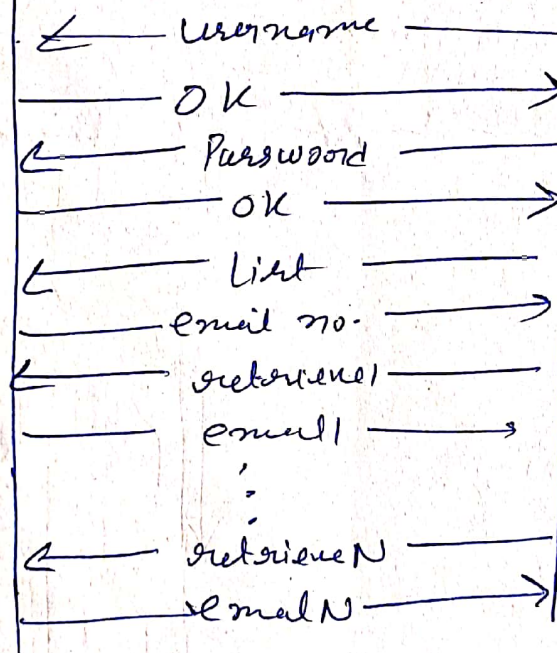 username
OK
Password
OK
List
email no.
retrieve1
email1
retrieveN
emalN